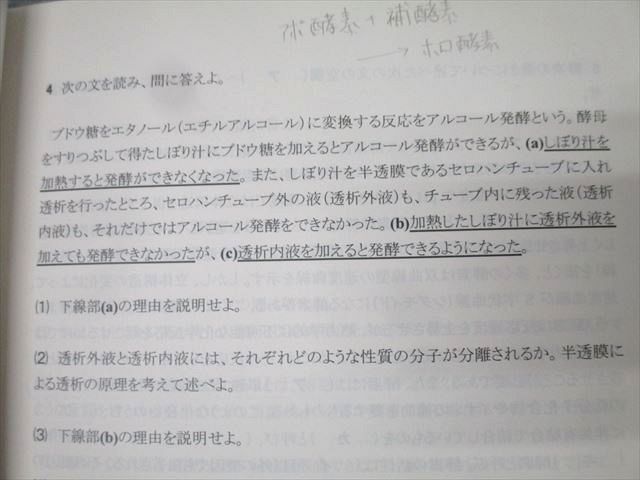 アポ酵素+補酵素
→ ホロ酵素
4 次の文を読み、問に答えよ。
ブドウ糖をエタノール(エチルアルコール)に変換する反応をアルコール発酵という。酵母
をすりつぶして得たしぼり汁にブドウ糖を加えるとアルコール発酵ができるが、(a)しぼり汁を
加熱すると発酵ができなくなった。また、しぼり汁を半透膜であるセロハンチューブに入れ
透析を行ったところ、セロハンチューブ外の液(透析外液)も、チューブ内に残った液(透析
内液)も、それだけではアルコール発酵をできなかった。(b)加熱したしぼり汁に透析外液を
加えても発酵できなかったが、(c)透析内液を加えると発酵できるようになった。
(1) 下線部(a)の理由を説明せよ。
(2) 透析外液と透析内液には、それぞれどのような性質の分子が分離されるか。半透膜に
よる透析の原理を考えて述べよ。
(3) 下線部(b)の理由を説明せよ。